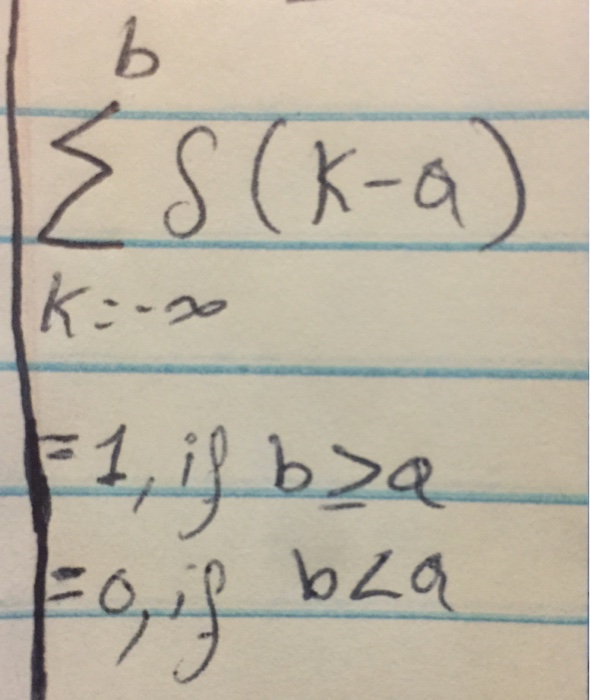 b
∑ δ(k-a)
k=-∞
=1, if b≥a
=0, if b<a